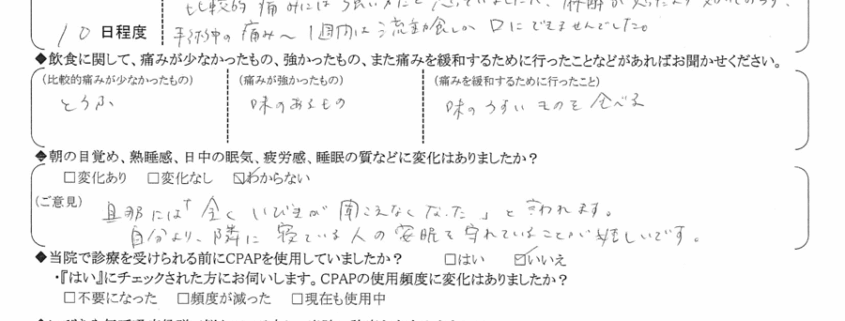 比較的痛みには強い方だと思っていましたが、麻酔が
10日程度 手術中の痛み〜1週間は流動食しか口にできませんでした。
◆飲食に関して、痛みが少なかったもの、強かったもの、また痛みを緩和するために行ったことなどがあればお聞かせください。
(比較的痛みが少なかったもの) (痛みが強かったもの) (痛みを緩和するために行ったこと)
とうふ 味のあるもの 味のうすいものを食べる
◆朝の目覚め、熟睡感、日中の眠気、疲労感、睡眠の質などに変化はありましたか?
□変化あり □変化なし ☑わからない
(ご意見) 旦那には「全くいびきが聞こえなくなった」と言われます。
自分より、隣に寝ている人の安眠を守れていることが嬉しいです。
◆当院で診療を受けられる前にCPAPを使用していましたか? □はい ☑いいえ
・『はい』にチェックされた方にお伺いします。CPAPの使用頻度に変化はありましたか?
□不要になった □頻度が減った □現在も使用中